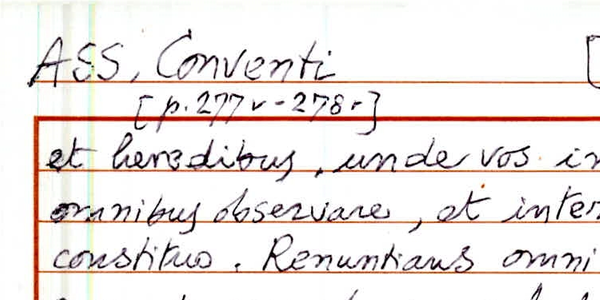 ASS, Conventi [
[p. 277v - 278r]
et heredibus, unde vos in
omnibus observare, et inter
constituo. Renuntians omni